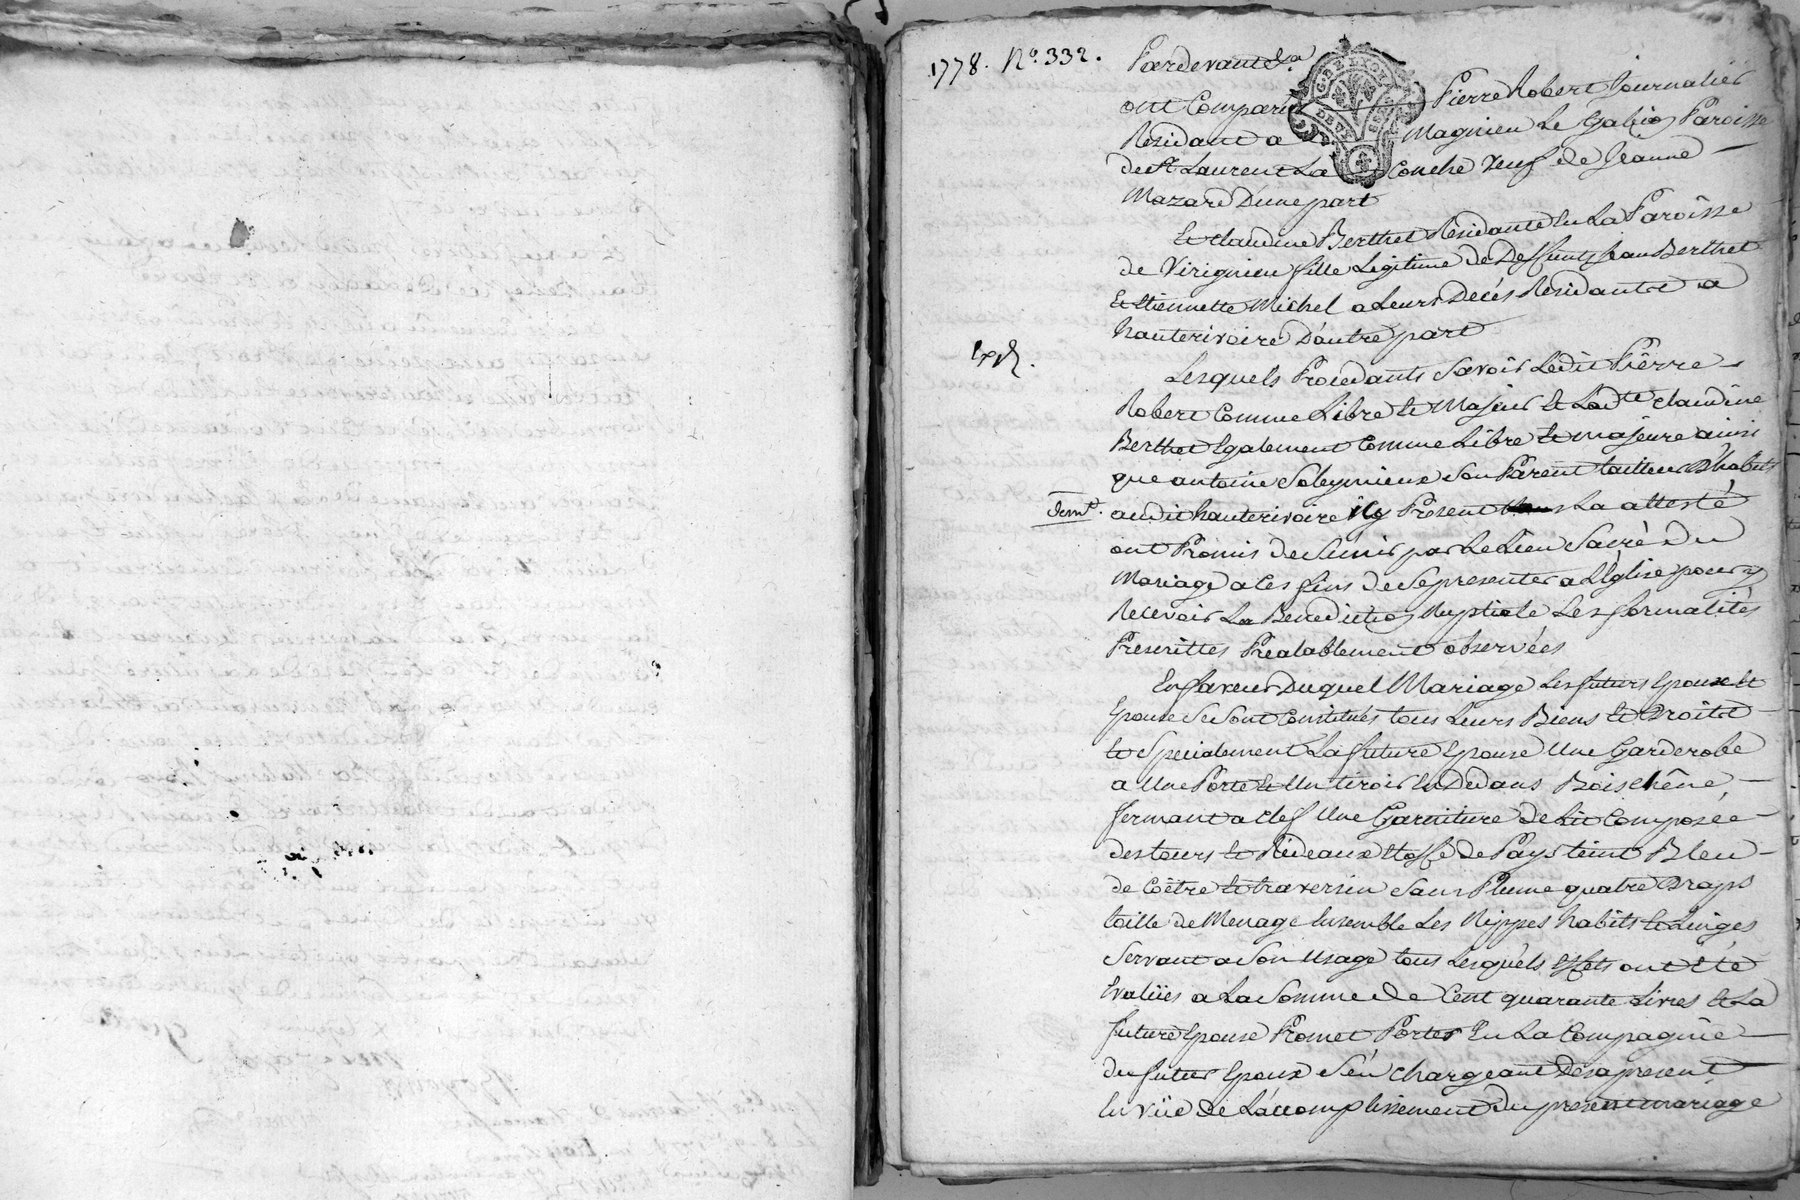 1778. No. 332.
Pardevant &a
G. DE LYON
DEUX SOLS
ont Comparu Pierre Robert Journalier
Résidant a Magnieu Le Gabion Paroisse
de St Laurent La Conche Veuf de Jeanne
Mazard D'une part
Et claudine Berthet Résidante En La Paroisse
de Virignieu fille Légitime de Deffunts Jean Berthet
Et Etiennette Michel a Leurs Décés Résidants a
hauterivoire D'autre part
Exp.
Lesquels Procedants Savoir Ledit Pierre
Robert Comme Libre et Majeur Et Ladte claudine
Berthet Egalement Comme Libre et majeure ainsi
que antoine Soleymieux Son Parent tailleur D'habits
demt. audit hauterivoire icy Présent La attesté
ont Promis de Sunir par Le Lien Sacré Du
Mariage a Ces fins de Se presenter a L'Eglise pour y
Recevoir La Benediction Nuptiale Les formalités
Prescrittes Préalablement observées
En faveur Duquel Mariage Les futurs Epoux Et
Epouse Se Sont Constitués tous Leurs Biens Et Droits
Et Spécialement La future Epouse Une Garderobe
a Une Porte Et Un tiroir En Dedans Bois chêne
fermant a clef Une Garniture de Lit Composée
des tours Et Rideaux Etoffe de Pays teint Bleu
de Coëtre Et traversin Sans Plume quatre Draps
toille de Menage Ensemble Les Nippes habits Et Linges
Servant a Son Usage tous Lesquels Effets ont Eté
Evalües a La Somme de Cent quarante Livres Et La
future Epouse Promet Porter En La Compagnie
du futur Epoux S'en chargeant Dès a present
En vüe de L'accomplissement du present mariage